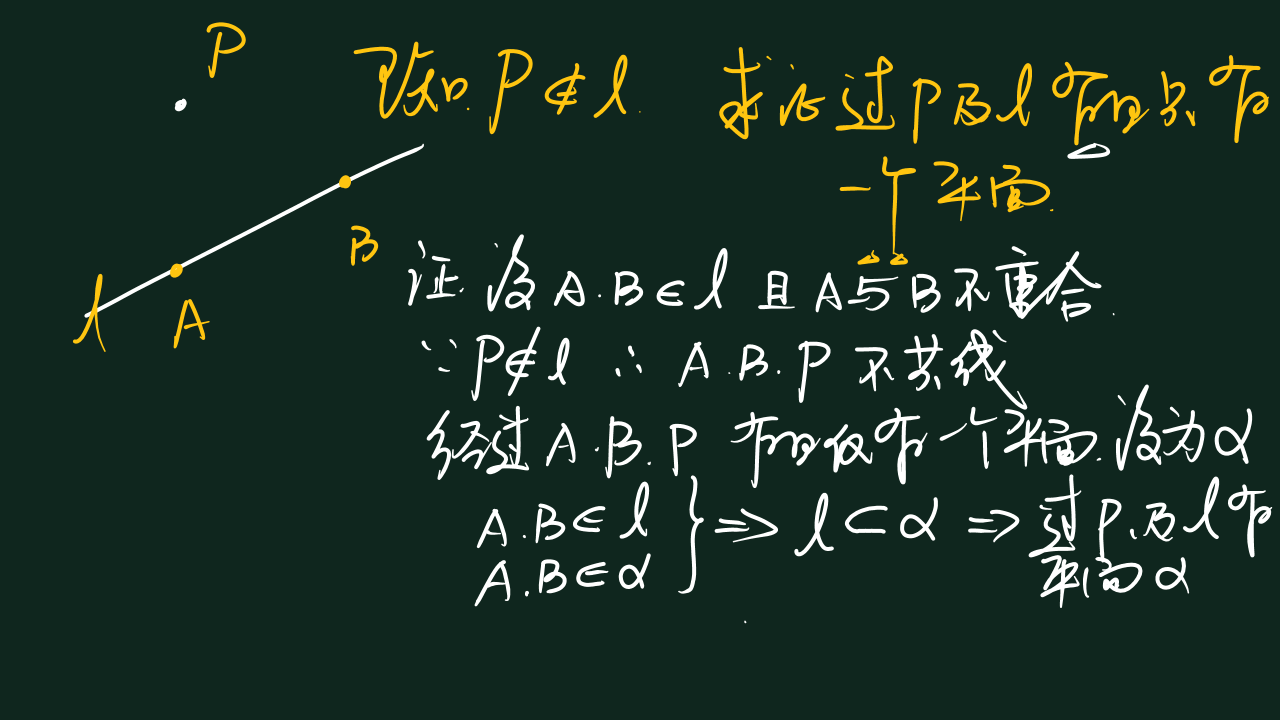 P
已知 P∉l 求证过P及l有且只有
一个平面.
B
l A
证. 设A.B∈l 且A与B不重合.
∵P∉l ∴ A.B.P不共线
经过A.B.P 有且仅有一个平面.设为α
A.B∈l } ⇒ l⊂α ⇒ 过P及l有
A.B∈α 平面α